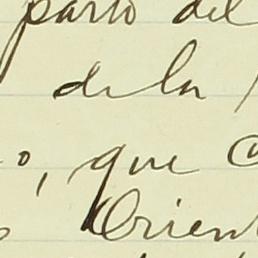 parto del
de la
o, que
Orient